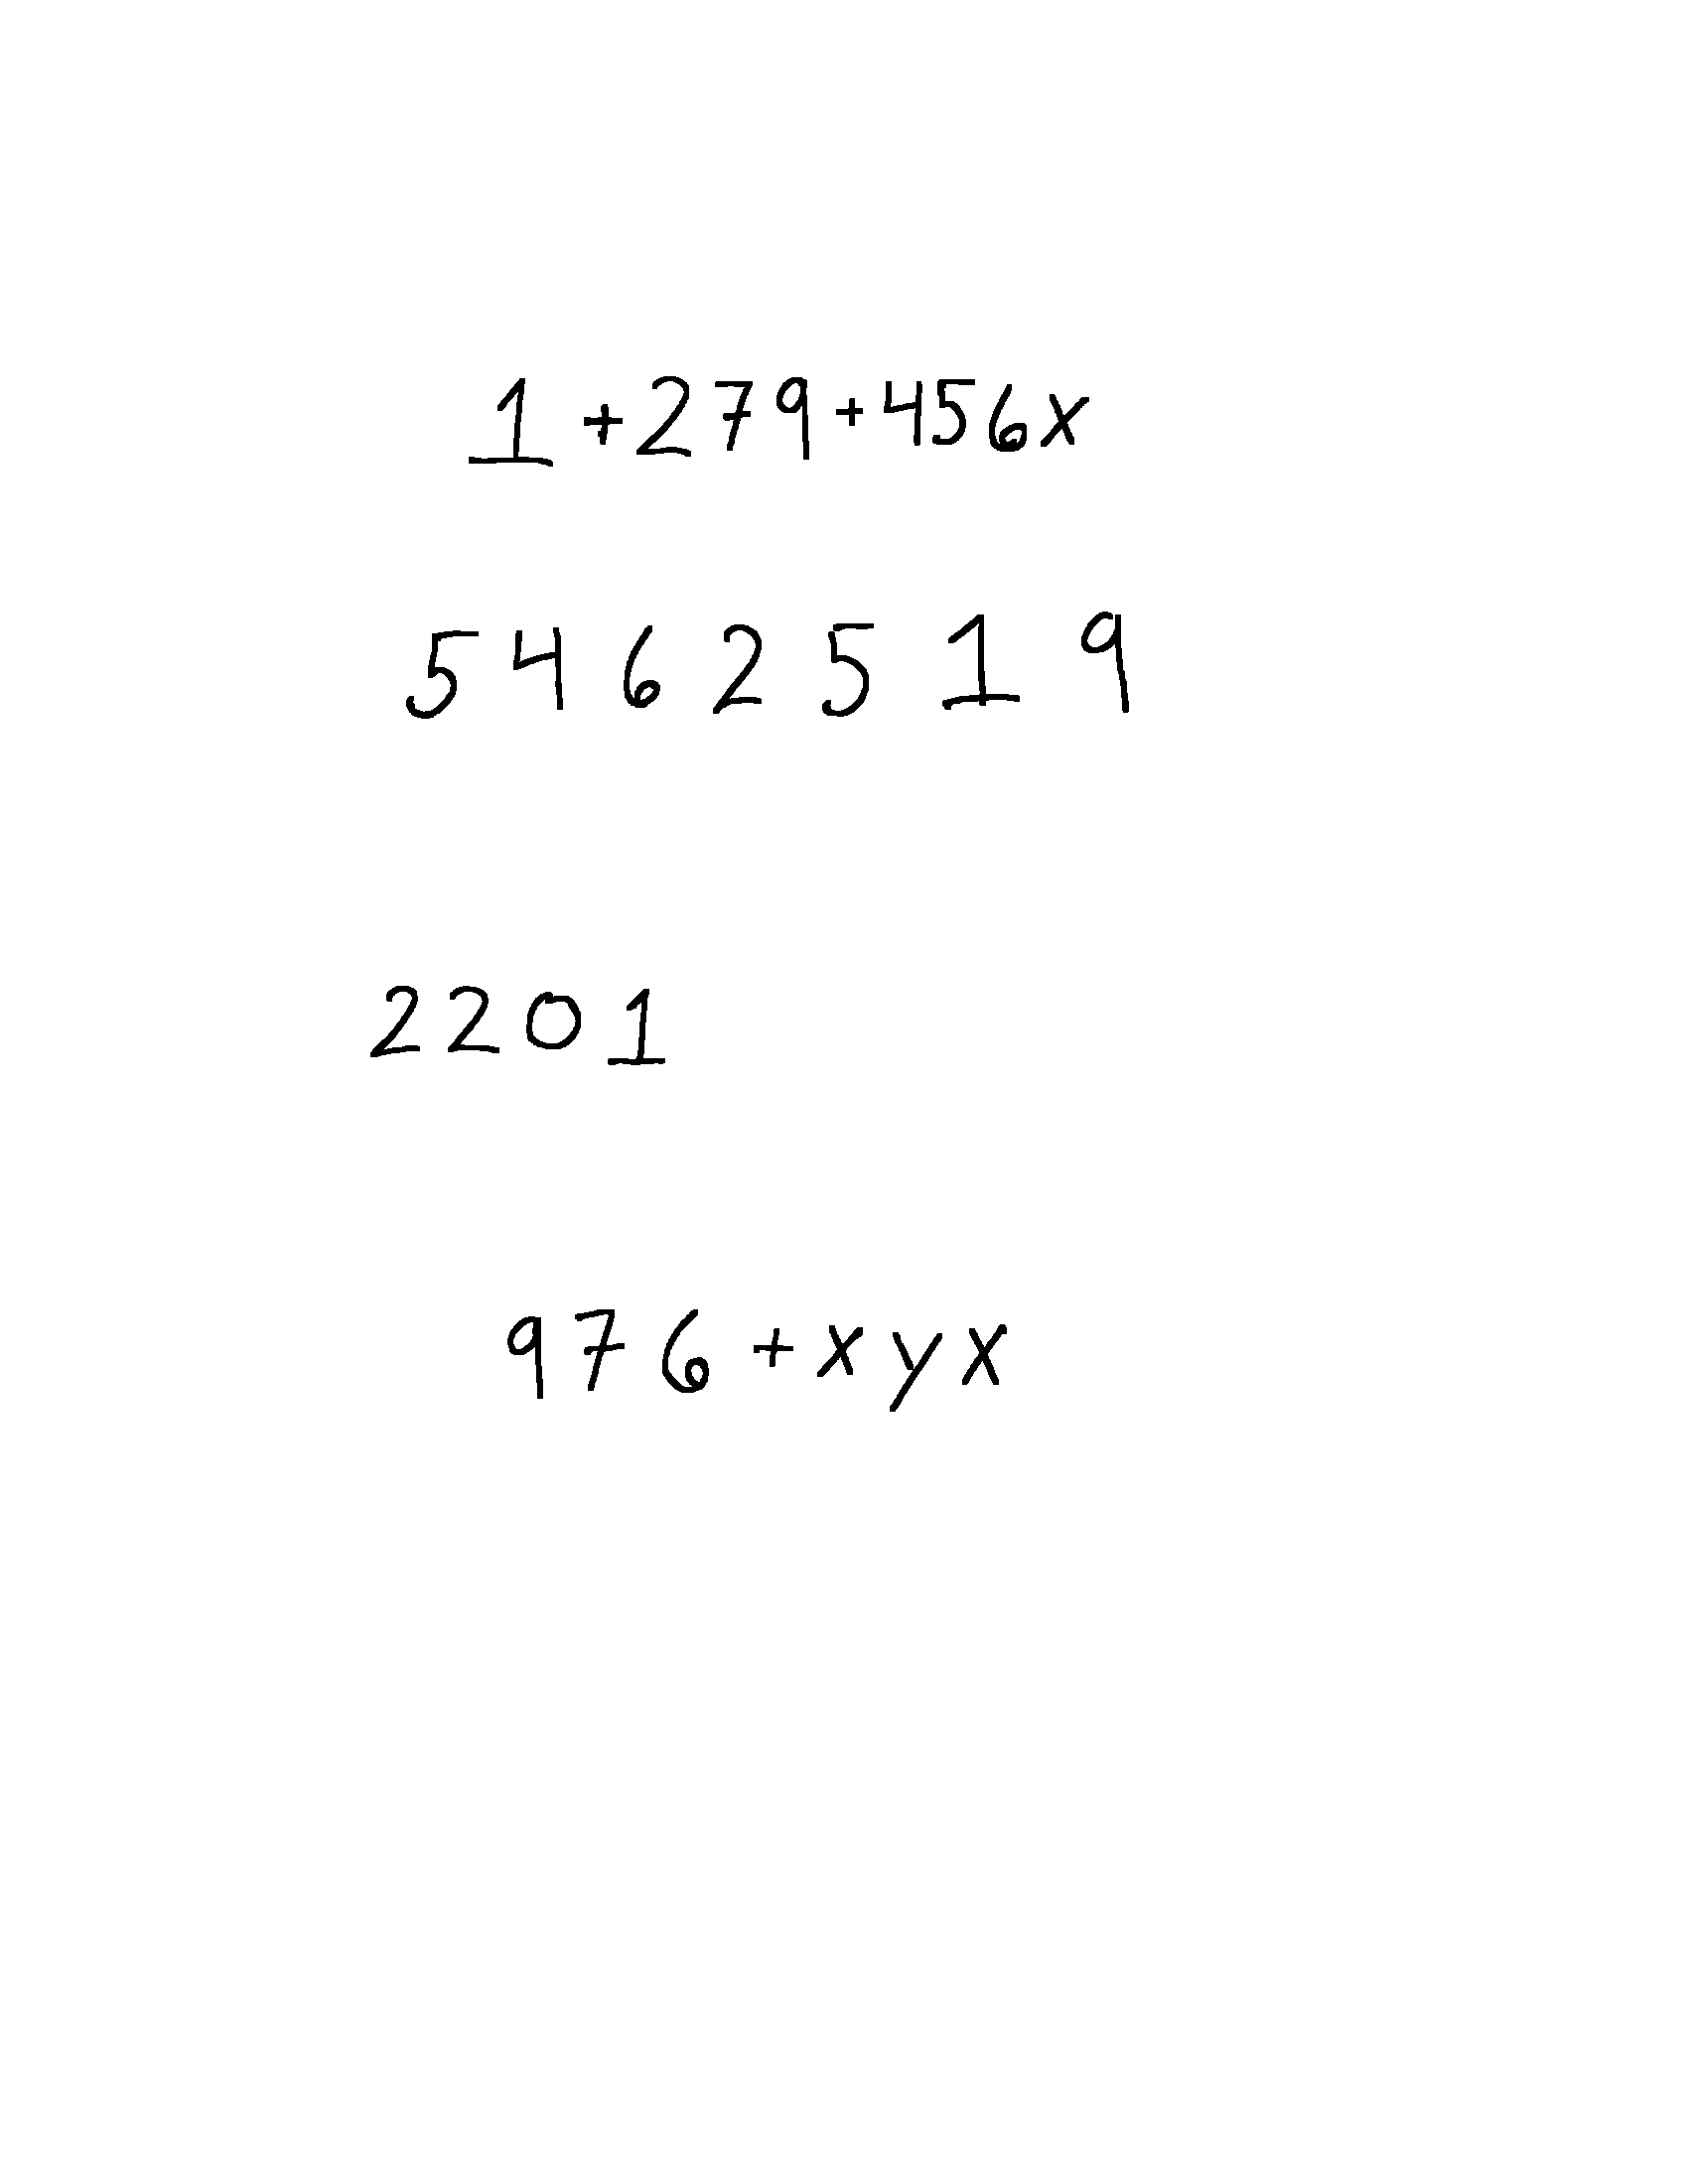 1+279+456x
5462519
2201
976+xyx